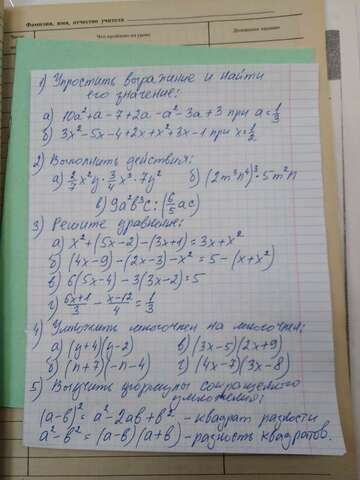 Фамилия, имя, отчество учителя
Что пройдено на уроке
Домашнее задание
1) Упростить выражение и найти
его значение:
а) 10a²+a-7+2a-a²-3a+3 при a=1/3
б) 3x²-5x-4+2x+x²+3x-1 при x=1/2
2) Выполнить действия:
а) 2/7x²y·3/4x³·7y² б) (2m³n⁴)³·5m²n
в) 9a²b³c:(6/5ac)
3) Решите уравнение:
а) x²+(5x-2)-(3x+1)=3x+x²
б) (4x-9)-(2x-3)-x²=5-(x+x²)
в) 6(5x-4)-3(3x-2)=5
г) (6x+1)/3-(x-12)/4=1/3
4) Умножить многочлен на многочлен:
а) (y+4)(y-2) в) (3x-5)(2x+9)
б) (n+7)(-n-4) г) (4x-7)(3x-8)
5) Выучить формулы сокращенного
умножения:
(a-b)²=a²-2ab+b² - квадрат разности
a²-b²=(a-b)(a+b) - разность квадратов.